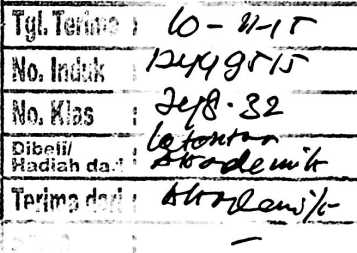 Tgl. Terima : 10-11-15
No. Induk : 1244 95/5
No. Klas : 248.32
Dibeli/
Hadiah dari : Akademik
Terima dari : Akademik
–